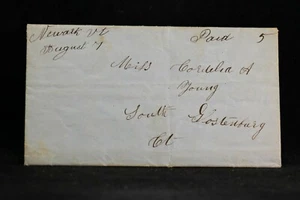 Newark Vt Paid 5
August 7
Miss Cordelia A
Young
South Glostenburg
Ct